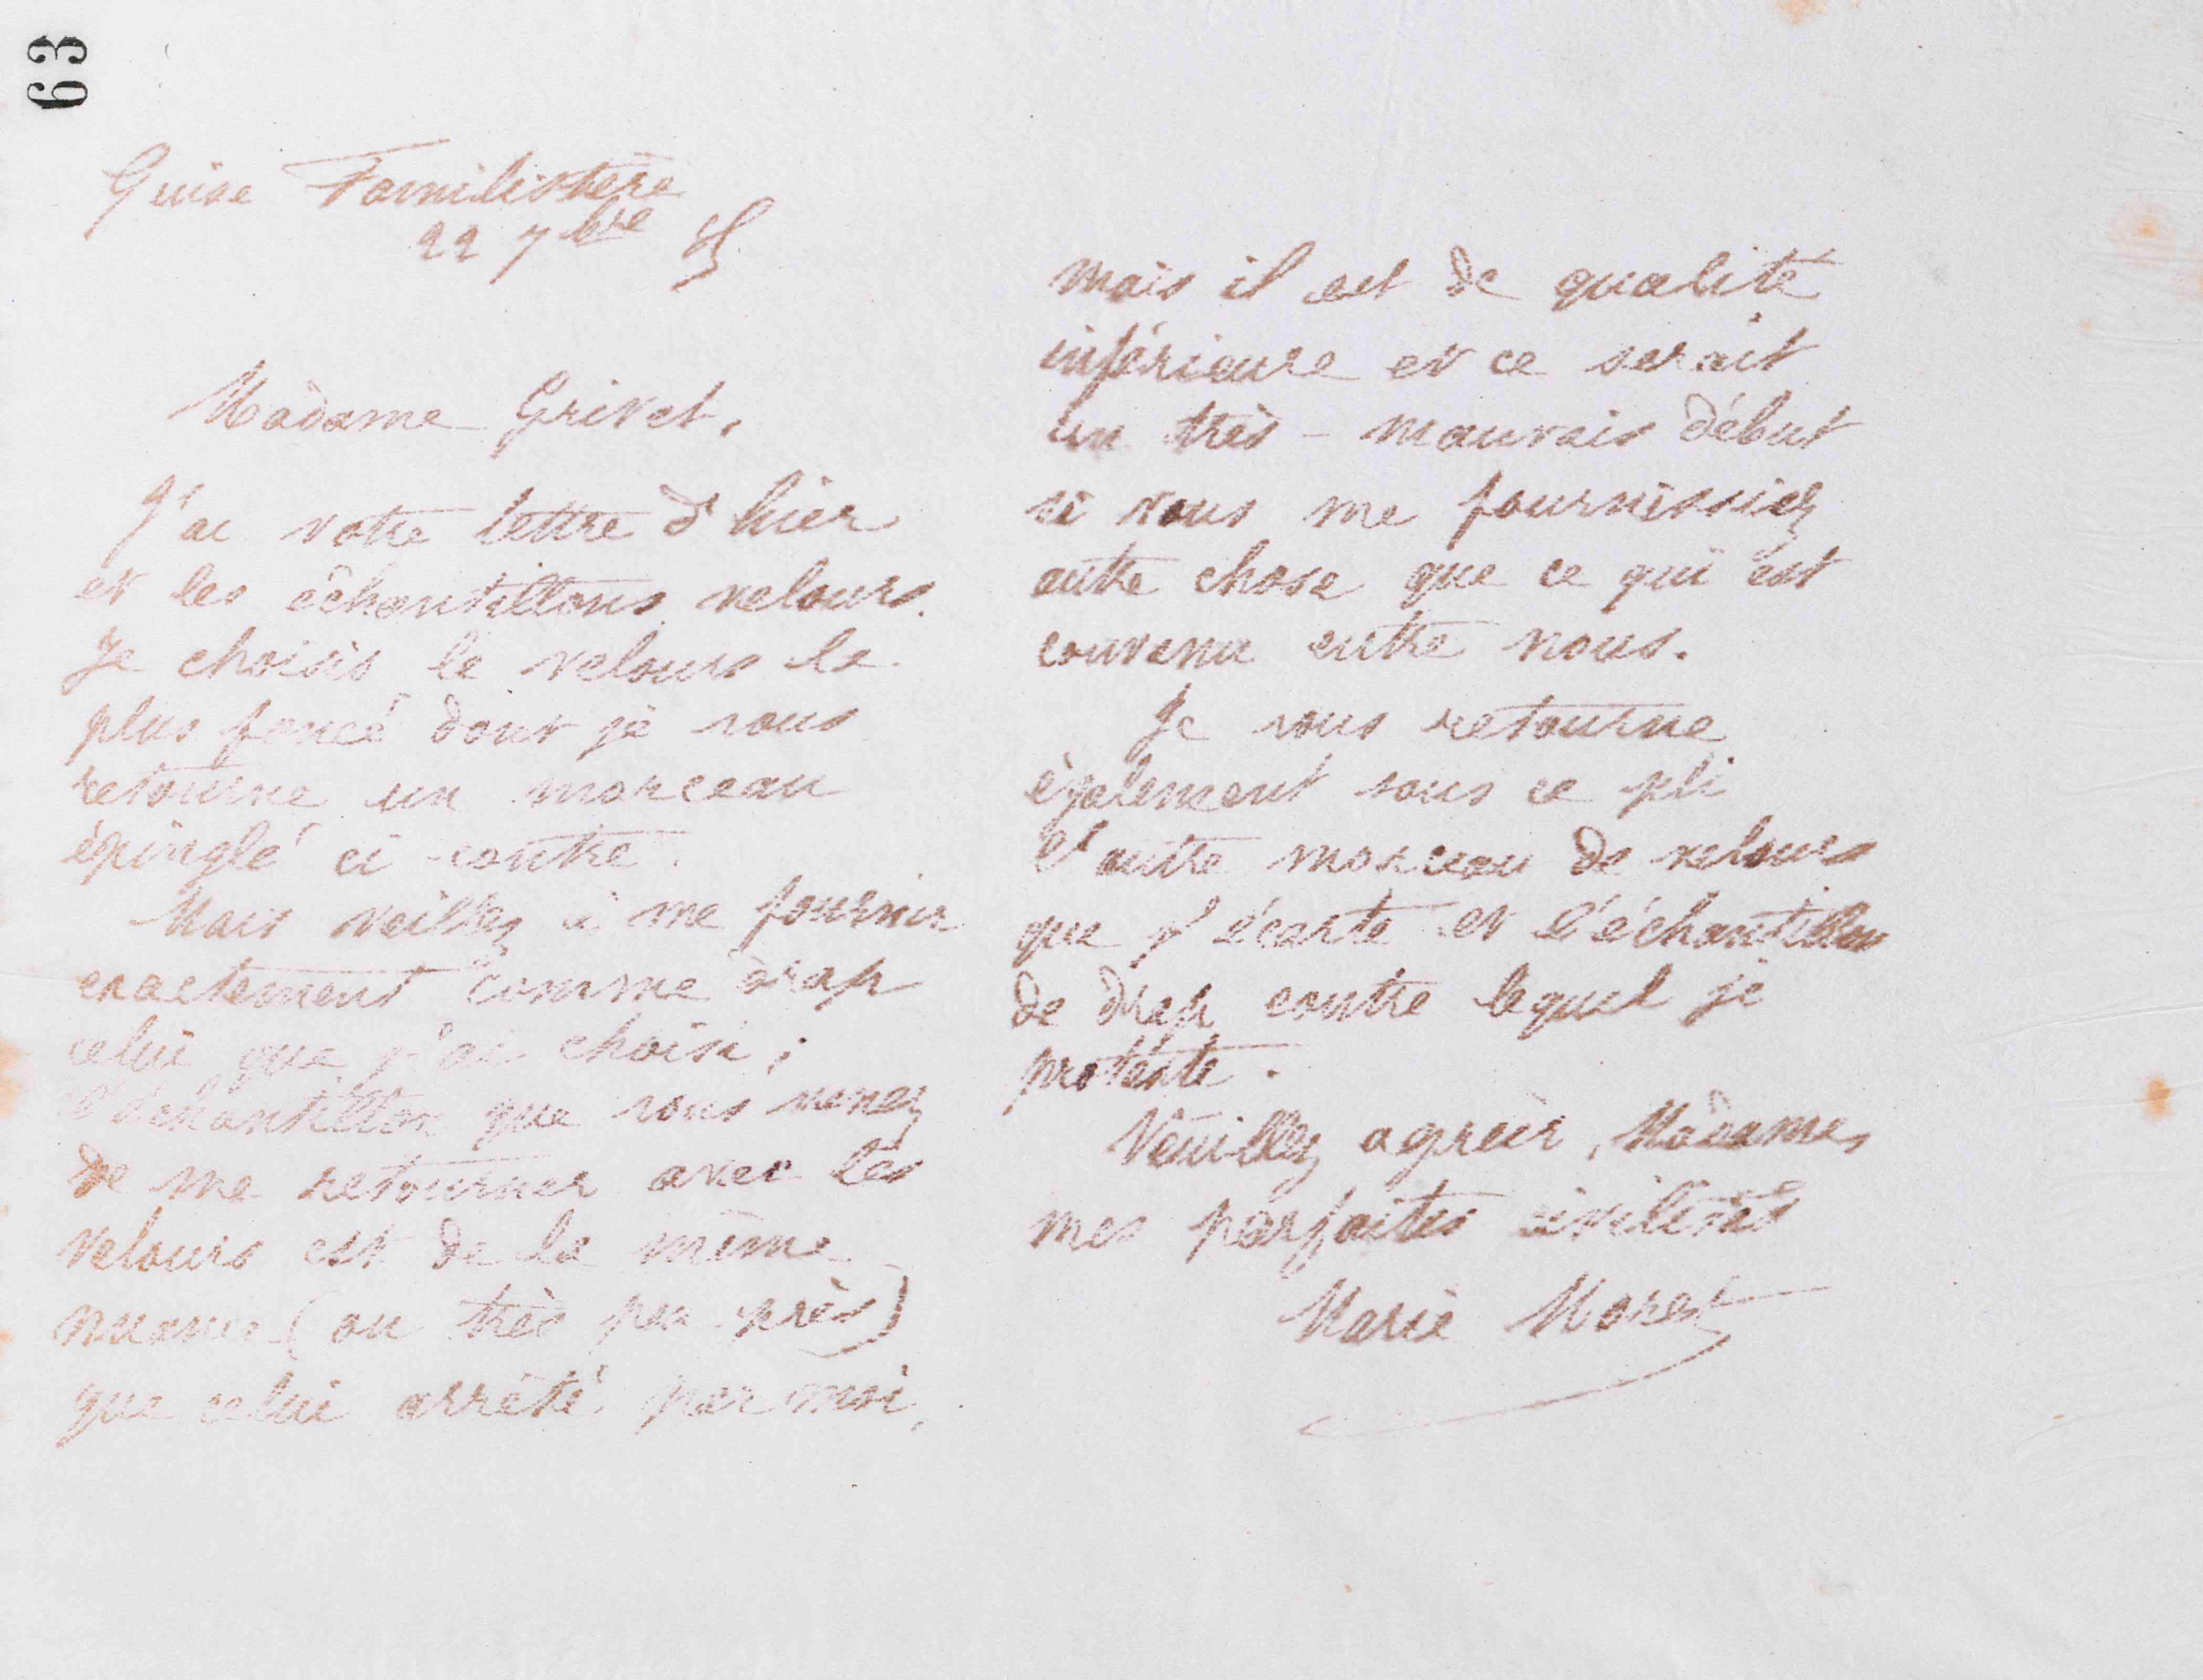 63
Guise Familistère
22 7bre 85
Madame Grivet,
J'ai votre lettre d'hier
et les échantillons velours.
Je choisis le velours le
plus foncé dont je vous
retourne un morceau
épinglé ci-contre.
Mais veillez à me fournir
exactement comme drap
celui que j'ai choisi ;
l'échantillon que vous venez
de me retourner avec les
velours est de la même
nuance (ou très peu près)
que celui arrêté par moi,
mais il est de qualité
inférieure et ce serait
un très-mauvais début
si vous me fournissiez
autre chose que ce qui est
convenu entre nous.
Je vous retourne
également sous ce pli
l'autre morceau de velours
que j'écarte et l'échantillon
de drap contre lequel je
proteste.
Veuillez agréer, Madame,
mes parfaites civilités
Marie Moret